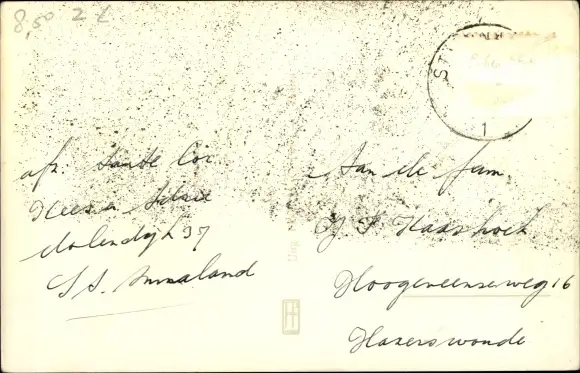 8,50 2 L
ST
1
afz. tante Cor
Kees en
Molendijk 37
St. Annaland
Aan de fam.
Kaashoek
Hoogeveenseweg 16
Hazerswoude